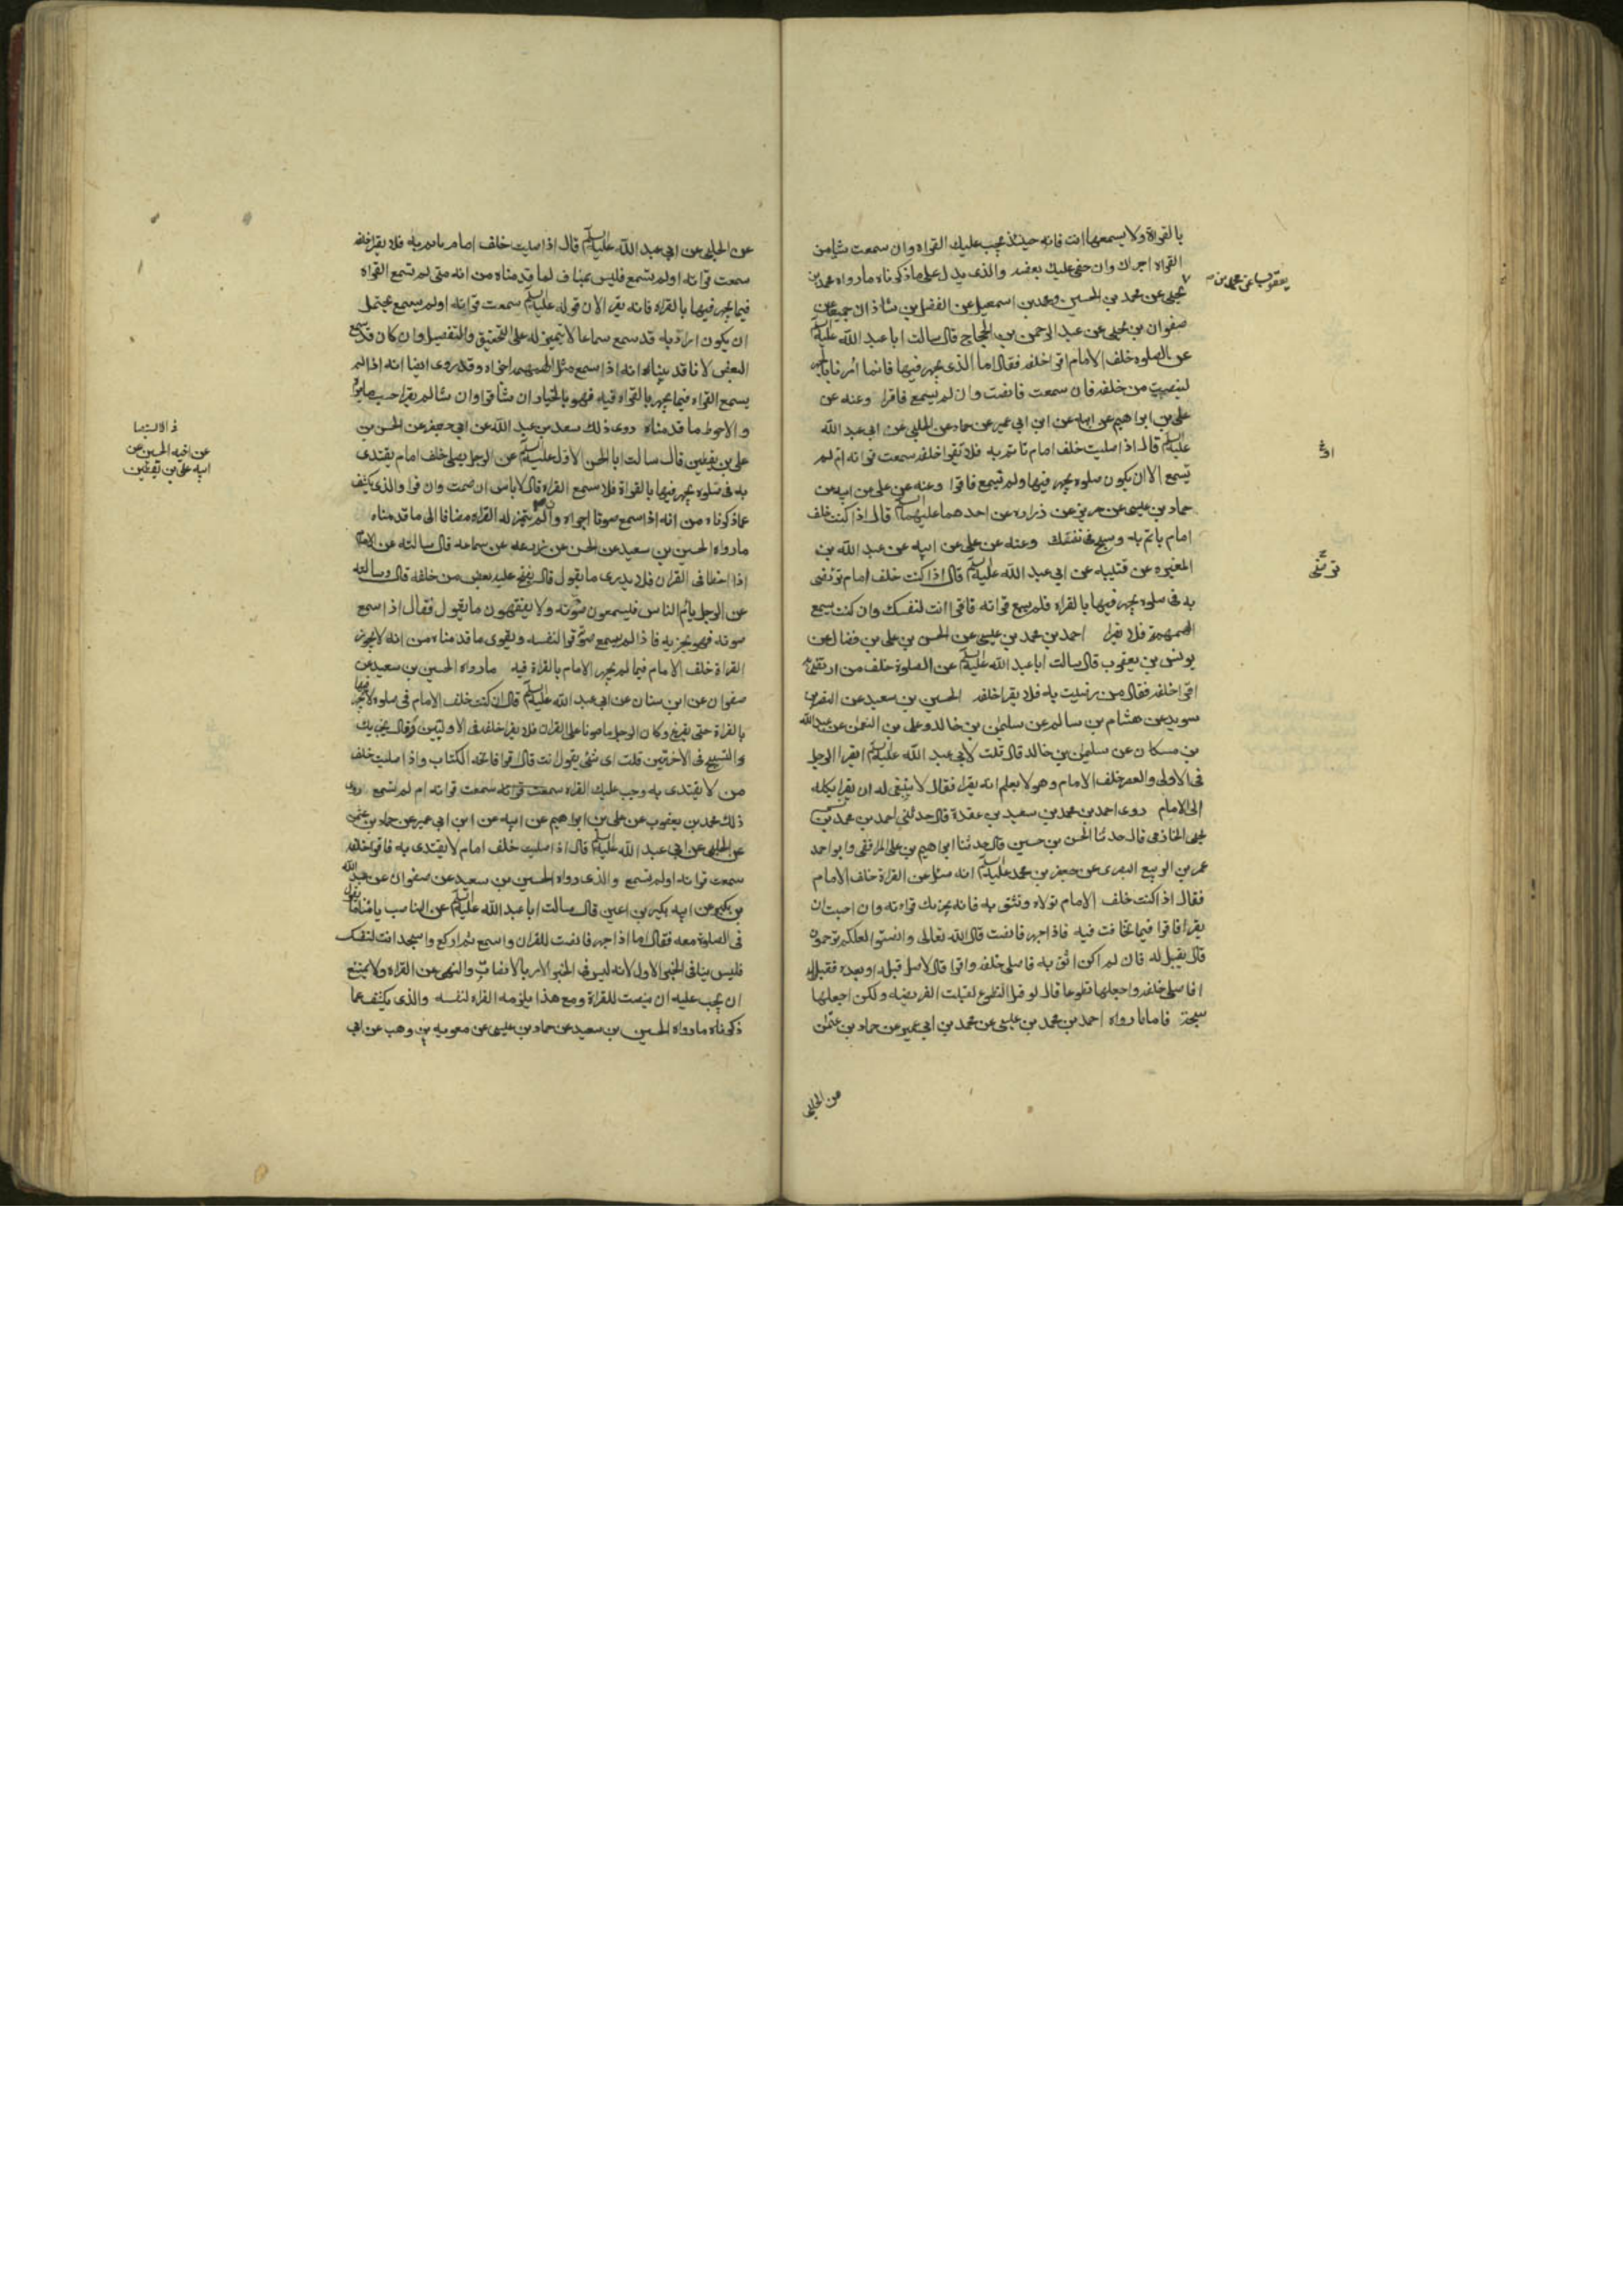 بالقراة ولا يسمعها انت فانه حينئذ يجب عليك القراه وان سمعت شيا من
القراه اجزاك وان خفى عليك بعضه والذى يدل على ماذكرناه مارواه محمد بن
يعقوب عن محمد بن
يحيى عن محمد بن الحسين ومحمد بن اسمعيل عن الفضل بن شاذان جميعا عن
صفوان بن يحيى عن عبد الرحمن بن الحجاج قال سالت ابا عبد الله عليه السلم
عن الصلوه خلف الامام اقرا خلفه فقال اما الذى يجهر فيها فانما امر بالجهر
لينصت من خلفه فان سمعت فانصت وان لم يسمع فاقرا وعنه عن
على بن ابراهيم عن ابيه عن ابن ابى عمير عن حماد عن الحلبى عن ابى عبد الله
عليه السلم قال اذا صليت خلف امام تاتم به فلا تقرا خلفه سمعت قراته ام لم
تسمع الا ان يكون صلوه يجهر فيها ولم تسمع فاقرا وعنه عن على عن ابيه عن
حماد بن عيسى عن حريز عن زراره عن احدهما عليهما السلم قال اذا كنت خلف
امام ياتم به وسبح فى نفسك وعنه عن على عن ابيه عن عبد الله بن
المغيره عن قتيبه عن ابى عبد الله عليه السلم قال اذا كنت خلف امام ترتضى
به فى صلوه يجهر فيها بالقراه فلم يسمع قراته فاقرا انت لنفسك وان كنت يسمع
الهمهمة فلا تقرا احمد بن محمد بن عيسى عن الحسن بن على بن فضال عن
يونس بن يعقوب قال سالت ابا عبد الله عليه السلم عن الصلوة خلف من ارتضى به
اقرا خلفه فقال من رضيت به فلا يقرا خلفه الحسين بن سعيد عن النضر بن
سويد عن هشام بن سالم عن سليمن بن خالد وعلى بن النعمن عن عبد الله
بن مسكان عن سليمن بن خالد قال قلت لابى عبد الله عليه السلم ايقرا الرجل
فى الاولى والعصر خلف الامام وهو لا يعلم انه يقرا فقال لا ينبغى له ان يقرا يكله
الى الامام روى احمد بن محمد بن سعيد بن عقدة قال حدثنى احمد بن محمد بن
يحيى الخازمى قال حدثنا الحسن بن حسين قال حدثنا ابراهيم بن على المرافقى وابو احمد
عمر بن الربيع البصرى عن جعفر بن محمد عليه السلم انه سئل عن القراة خلف الامام
فقال اذا كنت خلف الامام تولاه وتثق به فانه يجزيك قراءته وان احببت ان
يقرا فاقرا فيما يخافت فيه فاذا جهر فانصت قال الله تعالى وانصتوا لعلكم ترحمون
قال يقيل له فان لم اكن اثق به فاصلى خلفه واقرا قال لا صل قبله او بعده فقيل له
افاصلى خلفه واجعلها تطوعا قال لو قبل التطوع لقبلت الفريضه ولكن اجعلها
سبحة فاما مارواه احمد بن محمد بن عيسى عن محمد بن ابى عمير عن حماد بن عثمن
عن الحلبى
عن الحلبى عن ابى عبد الله عليه السلم قال اذا صليت خلف امام ياتم به فلا يقرا خلفه
سمعت قراته اولم تسمع فليس بمناف لما قدمناه من انه متى لم تسمع القراه
فيما يجهر فيها بالقراه فانه يقرا لان قوله عليه السلم سمعت قراته اولم يسمع يحتمل
ان يكون اراد به قد سمع سماعا لا يتميز له على التحقيق والتفصيل وان كان قد سمع
البعض لانا قد بيناه انه اذا سمع مثل الهمهمه اجزاه وقد روى ايضا انه اذا لم
يسمع القراه فيما يجهر بالقراه فيه فهو بالخيار ان شا قرا وان شا لم يقرا حسب ما يراه
والاحوط ما قدمناه روى ذلك سعد بن عبد الله عن ابى جعفر عن الحسن بن
على بن يقطين قال سالت ابا الحسن الاول عليه السلم عن الرجل يصلى خلف امام يقتدى
به فى صلوه يجهر فيها بالقراة فلا يسمع القراه قال لا باس ان صمت وان قرا والذى يكشف
عما ذكرناه من انه اذا سمع صوتا اجزاه وان لم يتميز له القراه مضافا الى ما قدمناه
مارواه الحسين بن سعيد عن الحسن عن زرعه عن سماعه قال سالته عن الامام
اذا اخطا فى القران فلا يدرى ما يقول قال يفتح عليه بعض من خلفه قال وسالته
عن الرجل يام الناس فيسمعون صوته ولا يفقهون ما يقول فقال اذا سمع
صوته فهو يجزيه فاذا لم يسمع صوته قرا لنفسه ويقوى ما قدمناه من انه لا يجوز
القراة خلف الامام فيما لم يجهر الامام بالقراة فيه مارواه الحسين بن سعيد عن
صفوان عن ابن سنان عن ابى عبد الله عليه السلم قال ان كنت خلف الامام فى صلوه لا يجهر فيها
بالقراة حتى يفرغ وكان الرجل مامونا على القران فلا يقرا خلفه فى الاوليين وقال يجزيك
والتسبيح فى الاخرتين قلت اى شئ يقول انت قال اقرا فاتحه الكتاب واذا صليت خلف
من لا يقتدى به وجب عليك القراه سمعت قراته سمعت قراته ام لم تسمع روى
ذلك محمد بن يعقوب عن على بن ابراهيم عن ابيه عن ابن ابى عمير عن حماد بن عثمن
عن الحلبى عن ابى عبد الله عليه السلم قال اذا صليت خلف امام لا يقتدى به فاقرا خلفه
سمعت قراته اولم تسمع والذى رواه الحسين بن سعيد عن صفوان عن عبد الله
بن بكير عن ابيه بكير بن اعين قال سالت ابا عبد الله عليه السلم عن الناصب يامنا ما تقول
فى الصلوة معه فقال اما اذا جهر فانصت للقران واسمع ثم اركع واسجد انت لنفسك
فليس ينافى الخبر الاول لانه ليس فى الخبر الامر بالانصات والنهى عن القراه ولا يمتنع
ان يجب عليه ان ينصت للقراة ومع هذا يلزمه القراه لنفسه والذى يكشف عما
ذكرناه مارواه الحسين بن سعيد عن حماد بن عيسى عن معويه بن وهب عن ابى
عن اخيه الحسين عن
ابيه على بن يقطين